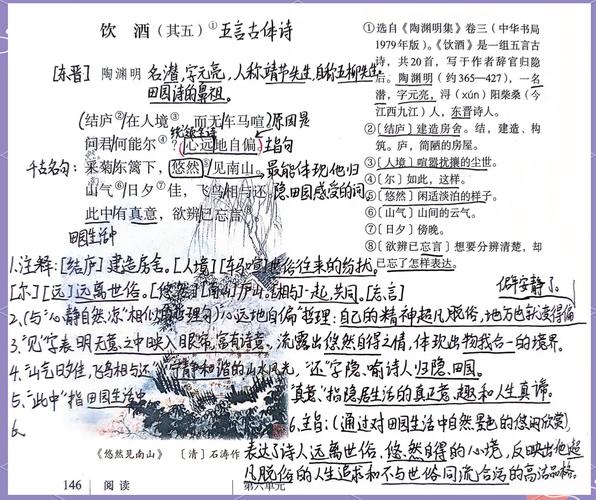 饮 酒（其五）① 五言古体诗
[东晋] 陶渊明 名潜，字元亮，人称靖节先生，自称五柳先生
田园诗的鼻祖。
结庐②在人境③，而无车马喧 原因是
问君何能尔④？心远地自偏 主旨句
千古名句：采菊东篱下，悠然⑤见南山。最能体现他归
山气⑥日夕⑦佳，飞鸟相与还 隐田园感受的词
此中有真意，欲辨已忘言⑧
田园生活中
①选自《陶渊明集》卷三（中华书局
1979年版）。《饮酒》是一组五言古
诗，共20首，写于作者辞官归隐
后。陶渊明（约365—427），一名
潜，字元亮，浔（xún）阳柴桑（今
江西九江）人，东晋诗人。
②〔结庐〕建造房舍。结，建造、构
筑。庐，简陋的房屋。
③〔人境〕喧嚣扰攘的尘世。
④〔尔〕如此，这样。
⑤〔悠然〕闲适淡泊的样子。
⑥〔山气〕山间的云气。
⑦〔日夕〕傍晚。
⑧〔欲辨已忘言〕想要分辨清楚，却
已忘了怎样表达。
1.注释：[结庐]建造房舍。[人境][车马喧]世俗往来的纷扰。
[尔][远]远离世俗。[悠然][南山]庐山。[相与]一起，共同。[忘言]
2.（与"心静自然凉"相似的哲理句）"心远地自偏"哲理：自己的精神超凡脱俗，地方也就变得偏
僻安静了。
3."见"字表明无意之中映入眼帘，富有诗意。流露出悠然自得之情，体现出物我合一的境界。
4."山气日夕佳，飞鸟相与还"宁静和谐的山水风光，"还"字隐喻诗人归隐田园。
5."此中"指田园生活中 "真意"指隐居生活的真正意趣和人生真谛。
6.主旨：（通过对田园生活中自然景色的悠闲欣赏）
表达了诗人远离世俗、悠然自得的心境，反映出他超
凡脱俗的人生追求和不与世俗同流合污的高洁品格。
6.
《悠然见南山》 〔清〕石涛作
146 阅读 第六单元